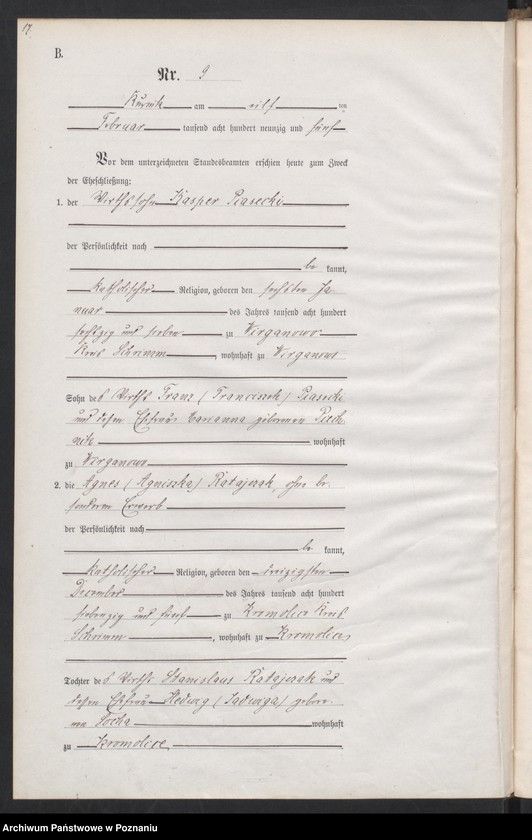 17.
B.
Nr. 9
Kurnik am eilf ten
Februar tausend acht hundert neunzig und fünf
Vor dem unterzeichneten Standesbeamten erschien heute zum Zweck
der Eheschließung:
1. der Wirthssohn Kasper Piasecki
der Persönlichkeit nach
be kannt,
katholischer Religion, geboren den sechsten Ja
nuar des Jahres tausend acht hundert
sechzig und sieben zu Wirganowo
Kreis Schrimm, wohnhaft zu Wirganowo
Sohn des Wirths Franz (Franciszek) Piasecki
und dessen Ehefrau Marianna geborenen Piech
nik wohnhaft
zu Wirganowo
2. die Agnes (Agnieszka) Ratajczak, ohne be
sonderen Erwerb
der Persönlichkeit nach
be kannt,
katholischer Religion, geboren den dreizigsten
December des Jahres tausend acht hundert
siebenzig und fünf zu Kromolice Kreis
Schrimm, wohnhaft zu Kromolice
Tochter des Wirths Stanislaus Ratajczak und
dessen Ehefrau Hedwig (Jadwiga) gebore
nen Socha wohnhaft
zu Kromolice
Archiwum Państwowe w Poznaniu